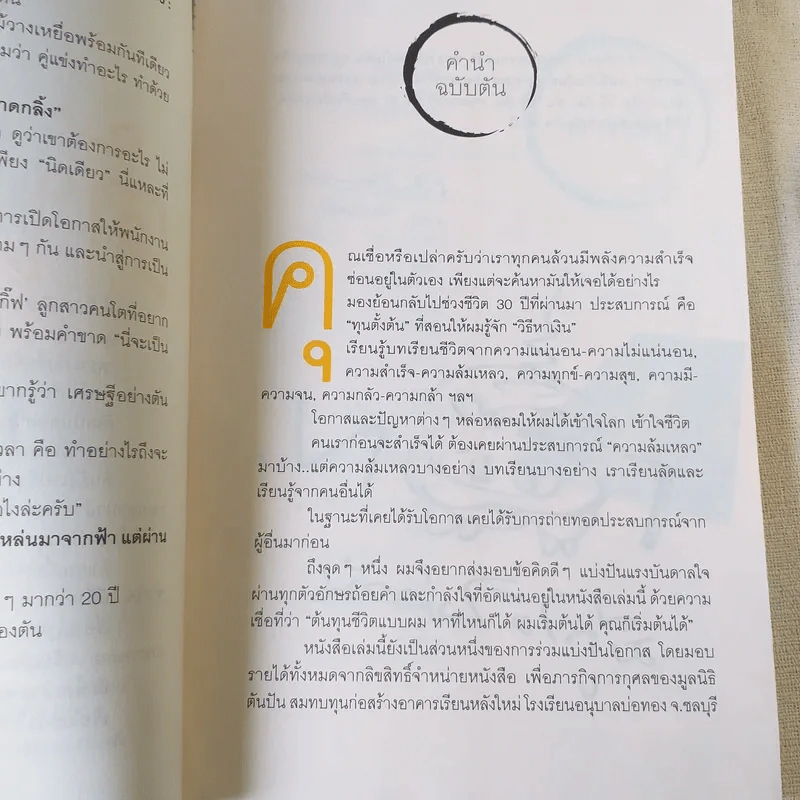 ผู้วางเหยื่อพร้อมกันทีเดียว
มว่า คู่แข่งทำอะไร ทำด้วย
าดกลิ้ง”
ดูว่าเขาต้องการอะไร ไม่
พียง “นิดเดียว” นี่แหละที่
การเปิดโอกาสให้พนักงาน
ามๆ กัน และนำสู่การเป็น
กิ๊ฟ’ ลูกสาวคนโตที่อยาก
พร้อมคำขาด “นี่จะเป็น
ยากรู้ว่า เศรษฐีอย่างตัน
วลา คือ ทำอย่างไรถึงจะ
ข้าง
อไงล่ะครับ”
หล่นมาจากฟ้า แต่ผ่าน
ๆ มากว่า 20 ปี
องตัน
คำนำ
ฉบับตัน
คุณเชื่อหรือเปล่าครับว่าเราทุกคนล้วนมีพลังความสำเร็จ
ซ่อนอยู่ในตัวเอง เพียงแต่จะค้นหามันให้เจอได้อย่างไร
มองย้อนกลับไปช่วงชีวิต 30 ปีที่ผ่านมา ประสบการณ์ คือ
“ทุนตั้งต้น” ที่สอนให้ผมรู้จัก “วิธีหาเงิน”
เรียนรู้บทเรียนชีวิตจากความแน่นอน-ความไม่แน่นอน,
ความสำเร็จ-ความล้มเหลว, ความทุกข์-ความสุข, ความมี-
ความจน, ความกลัว-ความกล้า ฯลฯ
โอกาสและปัญหาต่างๆ หล่อหลอมให้ผมได้เข้าใจโลก เข้าใจชีวิต
คนเราก่อนจะสำเร็จได้ ต้องเคยผ่านประสบการณ์ “ความล้มเหลว”
มาบ้าง..แต่ความล้มเหลวบางอย่าง บทเรียนบางอย่าง เราเรียนลัดและ
เรียนรู้จากคนอื่นได้
ในฐานะที่เคยได้รับโอกาส เคยได้รับการถ่ายทอดประสบการณ์จาก
ผู้อื่นมาก่อน
ถึงจุดๆ หนึ่ง ผมจึงอยากส่งมอบข้อคิดดีๆ แบ่งปันแรงบันดาลใจ
ผ่านทุกตัวอักษรถ้อยคำ และกำลังใจที่อัดแน่นอยู่ในหนังสือเล่มนี้ ด้วยความ
เชื่อที่ว่า “ต้นทุนชีวิตแบบผม หาที่ไหนก็ได้ ผมเริ่มต้นได้ คุณก็เริ่มต้นได้”
หนังสือเล่มนี้ยังเป็นส่วนหนึ่งของการร่วมแบ่งปันโอกาส โดยมอบ
รายได้ทั้งหมดจากลิขสิทธิ์จำหน่ายหนังสือ เพื่อภารกิจการกุศลของมูลนิธิ
ตันปัน สมทบทุนก่อสร้างอาคารเรียนหลังใหม่ โรงเรียนอนุบาลบ่อทอง จ.ชลบุรี